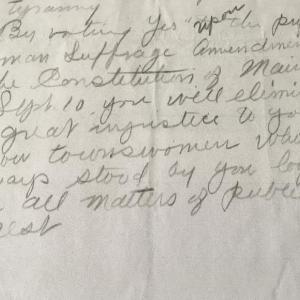 tyranny
By voting Yes upon the pr
man Suffrage Amendmen
he Constitution of Main
Sept. 10 you will elimi
great injustice to yo
our townswomen who
ways stood by you loy
all matters of public
rest